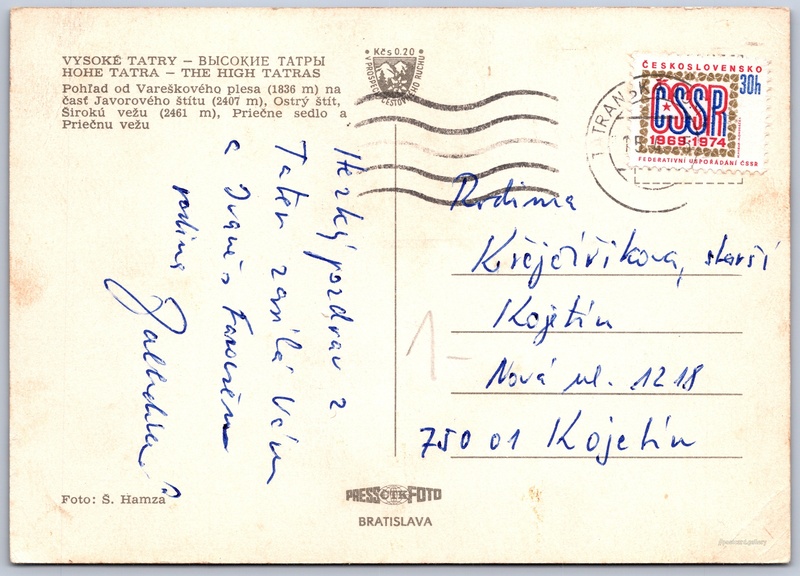 VYSOKÉ TATRY – ВЫСОКИЕ ТАТРЫ
HOHE TATRA – THE HIGH TATRAS
Pohľad od Vareškového plesa (1836 m) na
časť Javorového štítu (2407 m), Ostrý štít,
Širokú vežu (2461 m), Priečne sedlo a
Priečnu vežu
Kčs 0.20
V PROSPECH CESTOVNÉHO RUCHU
ČESKOSLOVENSKO
30h
ČSSR
1969-1974
FEDERATIVNÍ USPOŘÁDÁNÍ ČSSR
Hezký pozdrav z
Tater zasílá Vám
a
rodina
Rodina
Krejčiříkova, starší
Kojetín
Nová ul. 1218
750 01 Kojetín
1-
Foto: Š. Hamza
PRESSČTKFOTO
BRATISLAVA